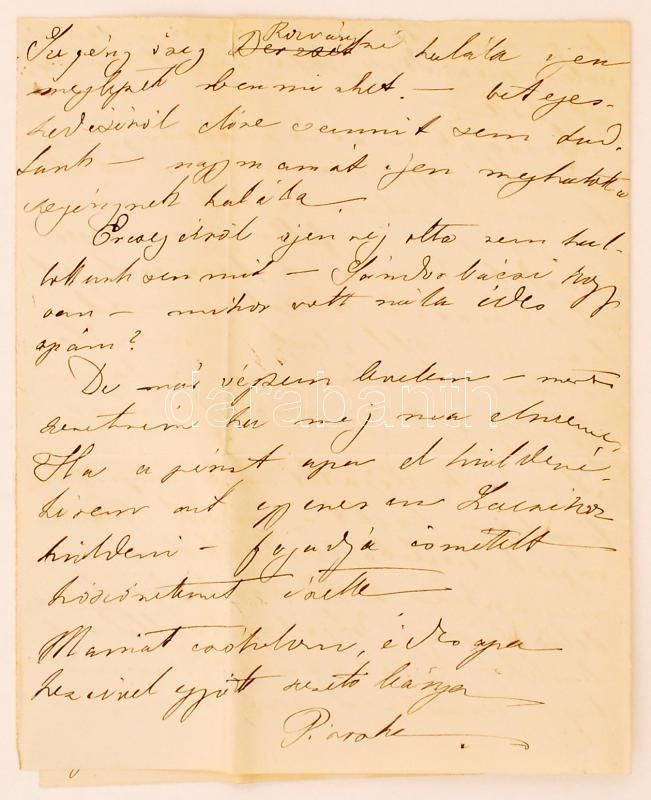 Szegény öreg Rozványiné halála igen
meglepett bennünket. — beteges-
kedéséről előre semmit sem tud-
tunk — nagymamát igen meghatotta
szegénynek halála.
Erzsiékről igen rég olta sem hal-
lottunk semmit — Sándor bácsi hogy
van — mikor volt nála édes
apám?
De már végzem levelem — mert
szeretném ha még ma elmenne,
Ha a pénzt apa el küldené
kérem azt egyenesen Laczihoz
küldeni — fogadja ismételt
köszönetemet érette
Mamát csókolom, édes apa
kezeivel együtt szerető leánya
Piroska
darabanth